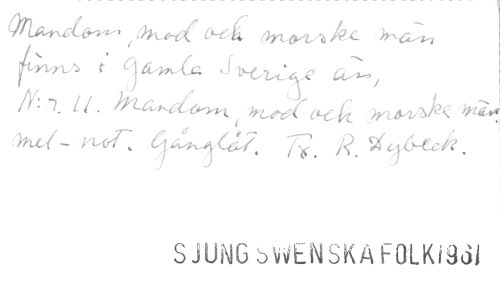 Mandom, mod och morske män
finns i Gamla Sverige än,
N:r. 11. Mandom, mod och morske män.
mel-not. Gånglåt. Tx. R. Dybeck.
SJUNG SWENSKA FOLK 1961